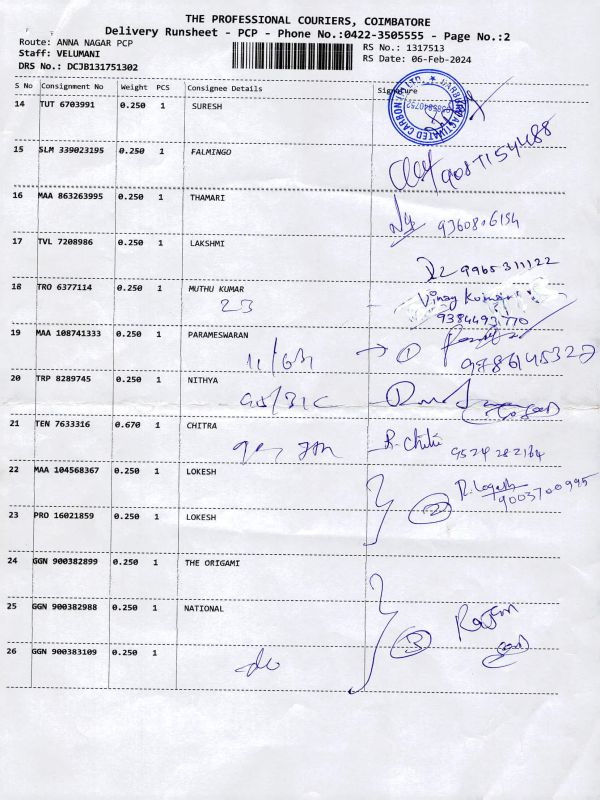 THE PROFESSIONAL COURIERS, COIMBATORE
Delivery Runsheet - PCP - Phone No.:0422-3505555 - Page No.:2
Route: ANNA NAGAR PCP
RS No.: 1317513
Staff: VELUMANI
RS Date: 06-Feb-2024
DRS No.: DCJB131751302
S No Consignment No Weight PCS Consignee Details Signature
14 TUT 6703991 0.250 1 SURESH
15 SLM 339023195 0.250 1 FALMINGO
16 MAA 863263995 0.250 1 THAMARI
17 TVL 7208986 0.250 1 LAKSHMI
9965311122
18 TRO 6377114 0.250 1 MUTHU KUMAR
23
Vinay Kumar
19 MAA 108741333 0.250 1 PARAMESWARAN
1
9786145327
20 TRP 8289745 0.250 1 NITHYA
21 TEN 7633316 0.670 1 CHITRA
9524282164
22 MAA 104568367 0.250 1 LOKESH
2
9003700995
23 PRO 16021859 0.250 1 LOKESH
24 GGN 900382899 0.250 1 THE ORIGAMI
25 GGN 900382988 0.250 1 NATIONAL
3
26 GGN 900383109 0.250 1